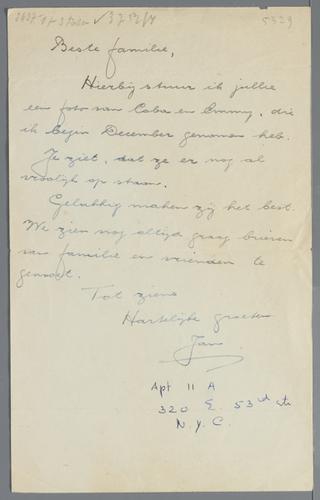 5329
Beste familie,
Hierbij stuur ik jullie
een foto van Coba en Emmy, die
ik begin December genomen heb.
Je ziet, dat ze er nog al
vroolijk op staan.
Gelukkig maken zij het best.
We zien nog altijd graag brieven
van familie en vrienden te
gemoet.
Tot ziens
Hartelijke groeten
Jan
Apt 11 A
320 E. 53rd str
N.Y.C.